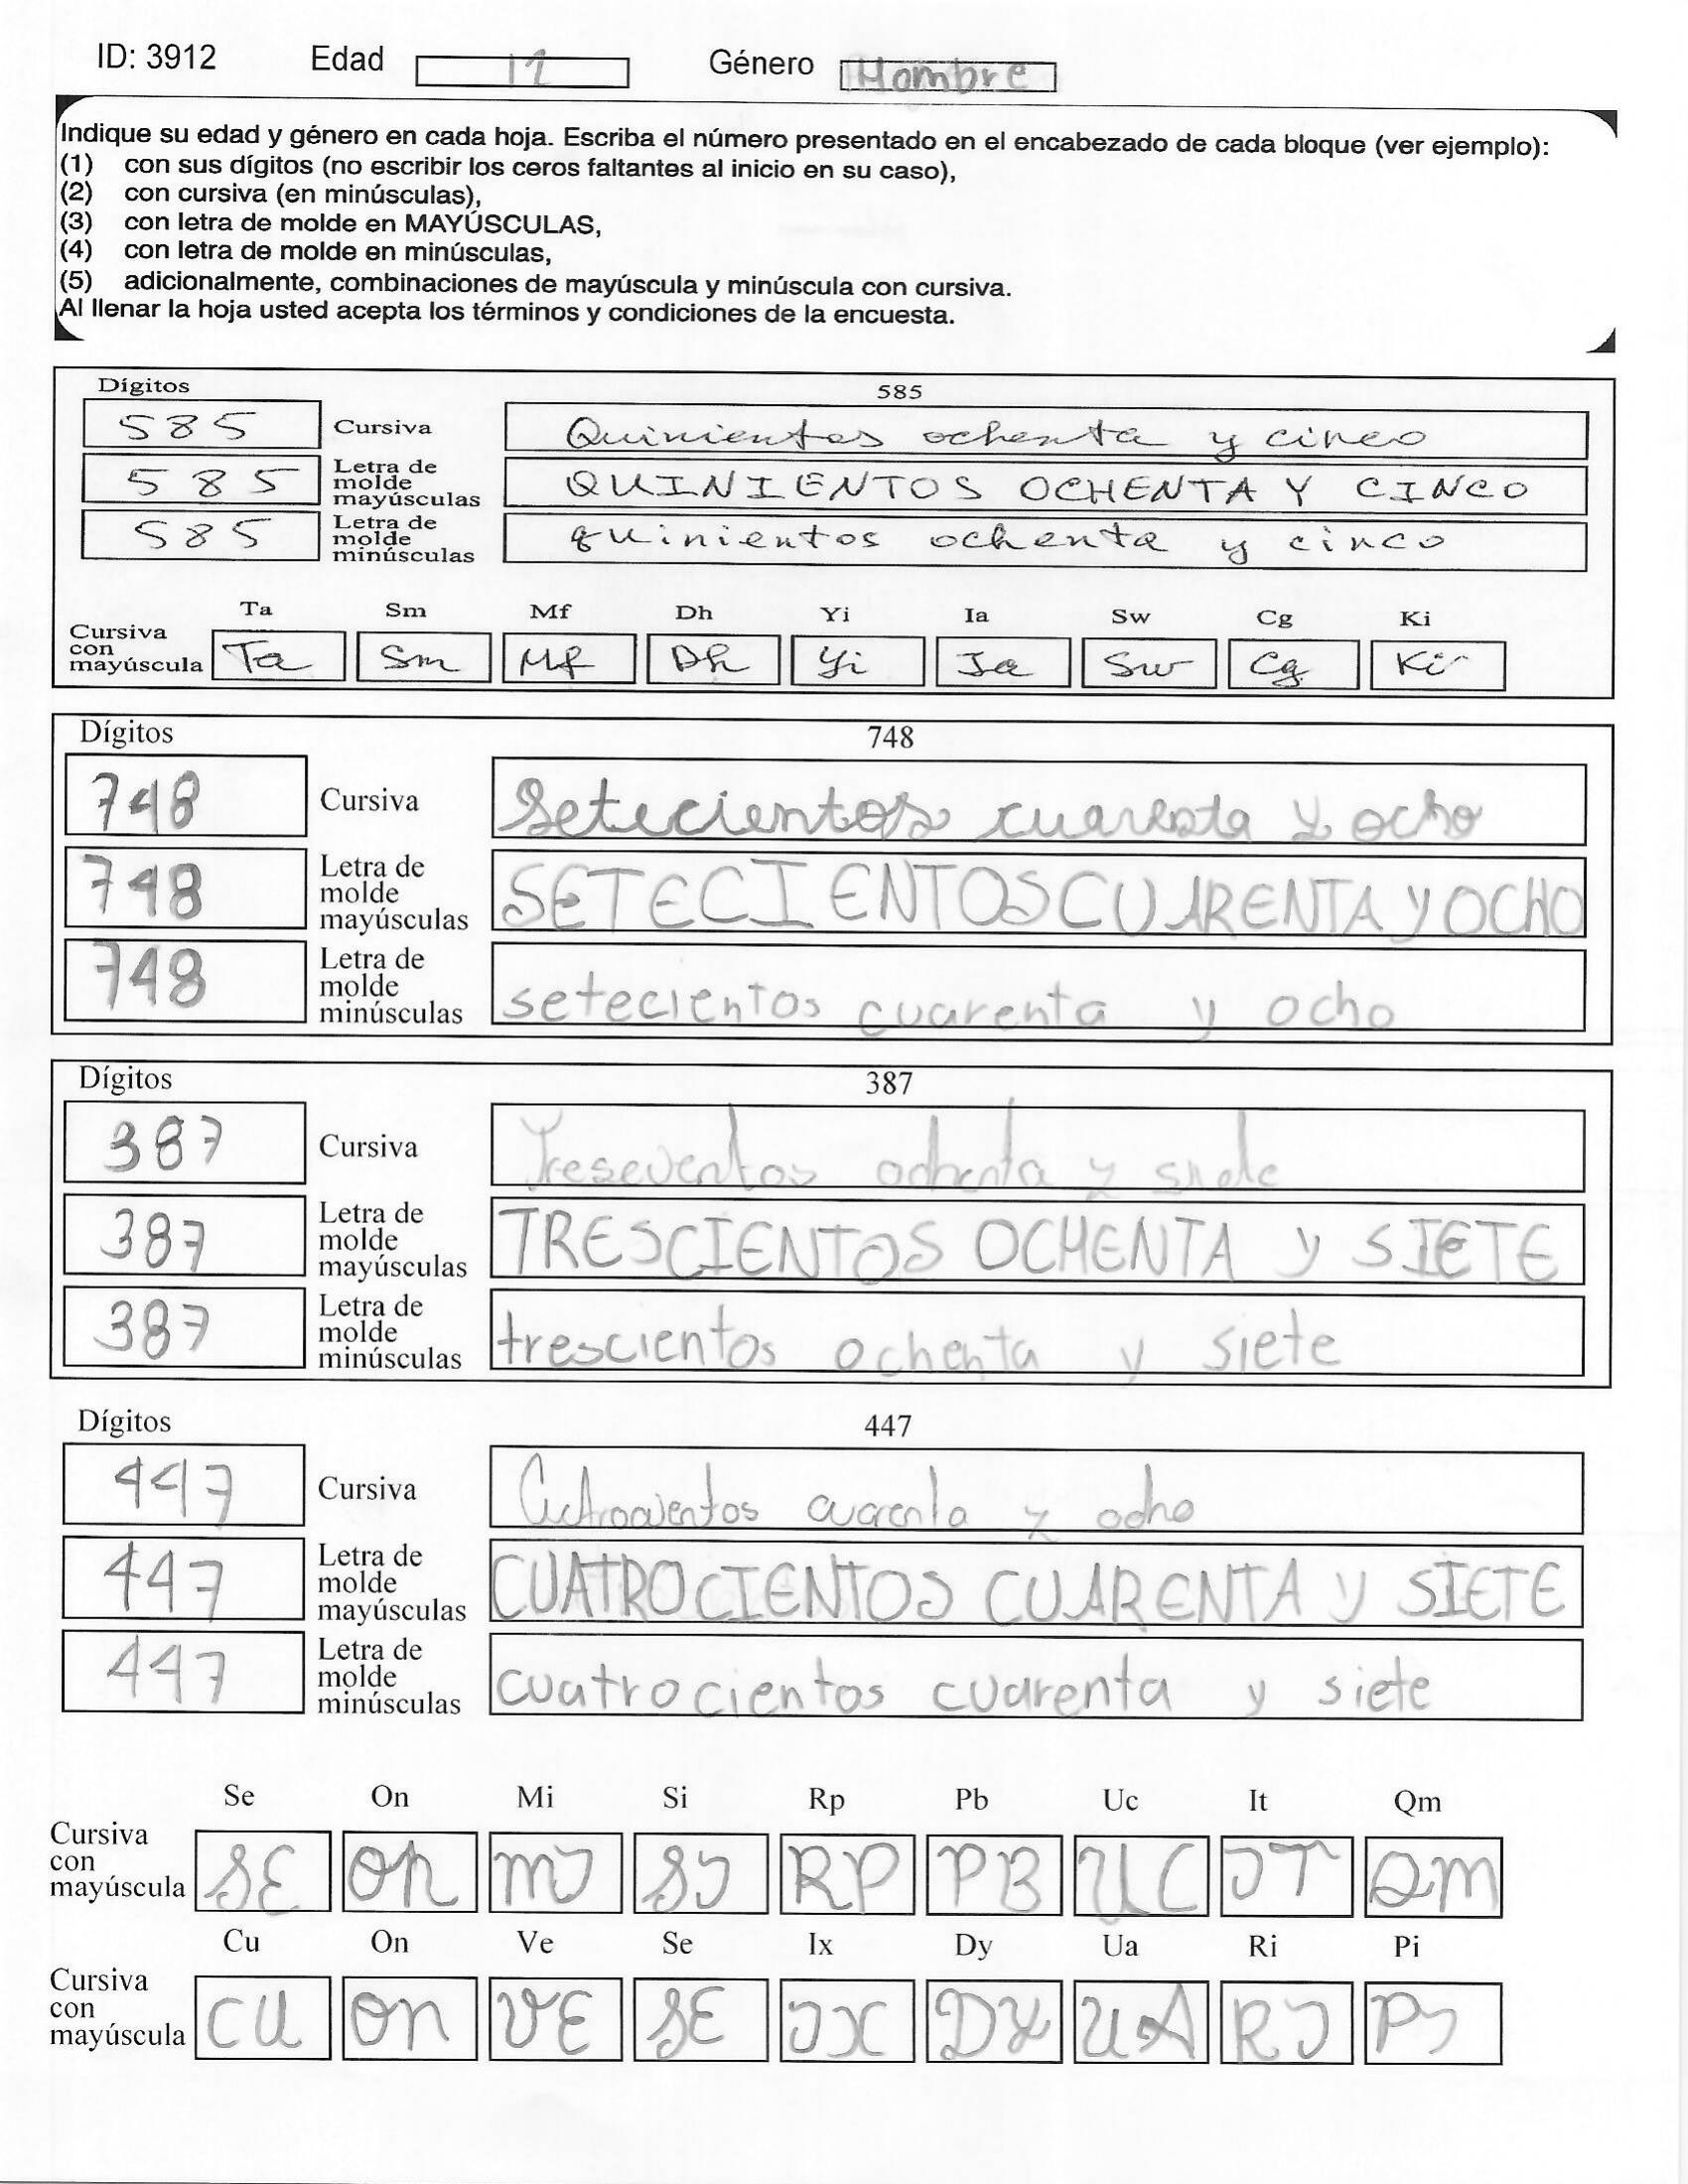 ID: 3912 Edad 12 Género Hombre
Indique su edad y género en cada hoja. Escriba el número presentado en el encabezado de cada bloque (ver ejemplo):
(1) con sus dígitos (no escribir los ceros faltantes al inicio en su caso),
(2) con cursiva (en minúsculas),
(3) con letra de molde en MAYÚSCULAS,
(4) con letra de molde en minúsculas,
(5) adicionalmente, combinaciones de mayúscula y minúscula con cursiva.
Al llenar la hoja usted acepta los términos y condiciones de la encuesta.
Dígitos 585
585 Cursiva Quinientos ochenta y cinco
585 Letra de molde mayúsculas QUINIENTOS OCHENTA Y CINCO
585 Letra de molde minúsculas quinientos ochenta y cinco
Ta Sm Mf Dh Yi Ia Sw Cg Ki
Cursiva con mayúscula Ta Sm Mf Dh Yi Ia Sw Cg Ki
Dígitos 748
748 Cursiva Setecientos cuarenta y ocho
748 Letra de molde mayúsculas SETECIENTOS CUARENTA Y OCHO
748 Letra de molde minúsculas setecientos cuarenta y ocho
Dígitos 387
387 Cursiva ochenta y siete
387 Letra de molde mayúsculas TRESCIENTOS OCHENTA y SIETE
387 Letra de molde minúsculas trescientos ochenta y siete
Dígitos 447
447 Cursiva cuarenta y ocho
447 Letra de molde mayúsculas CUATROCIENTOS CUARENTA y SIETE
447 Letra de molde minúsculas cuatrocientos cuarenta y siete
Se On Mi Si Rp Pb Uc It Qm
Cursiva con mayúscula SE On MI SI RP PB UC IT QM
Cu On Ve Se Ix Dy Ua Ri Pi
Cursiva con mayúscula CU On VE SE IX DY UA RI PI